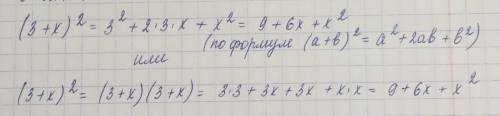 (3+x)² = 3² + 2·3·x + x² = 9 + 6x + x²
(по формул (a+b)² = a² + 2ab + b²)
или
(3+x)² = (3+x)(3+x) = 3·3 + 3x + 3x + x·x = 9 + 6x + x²